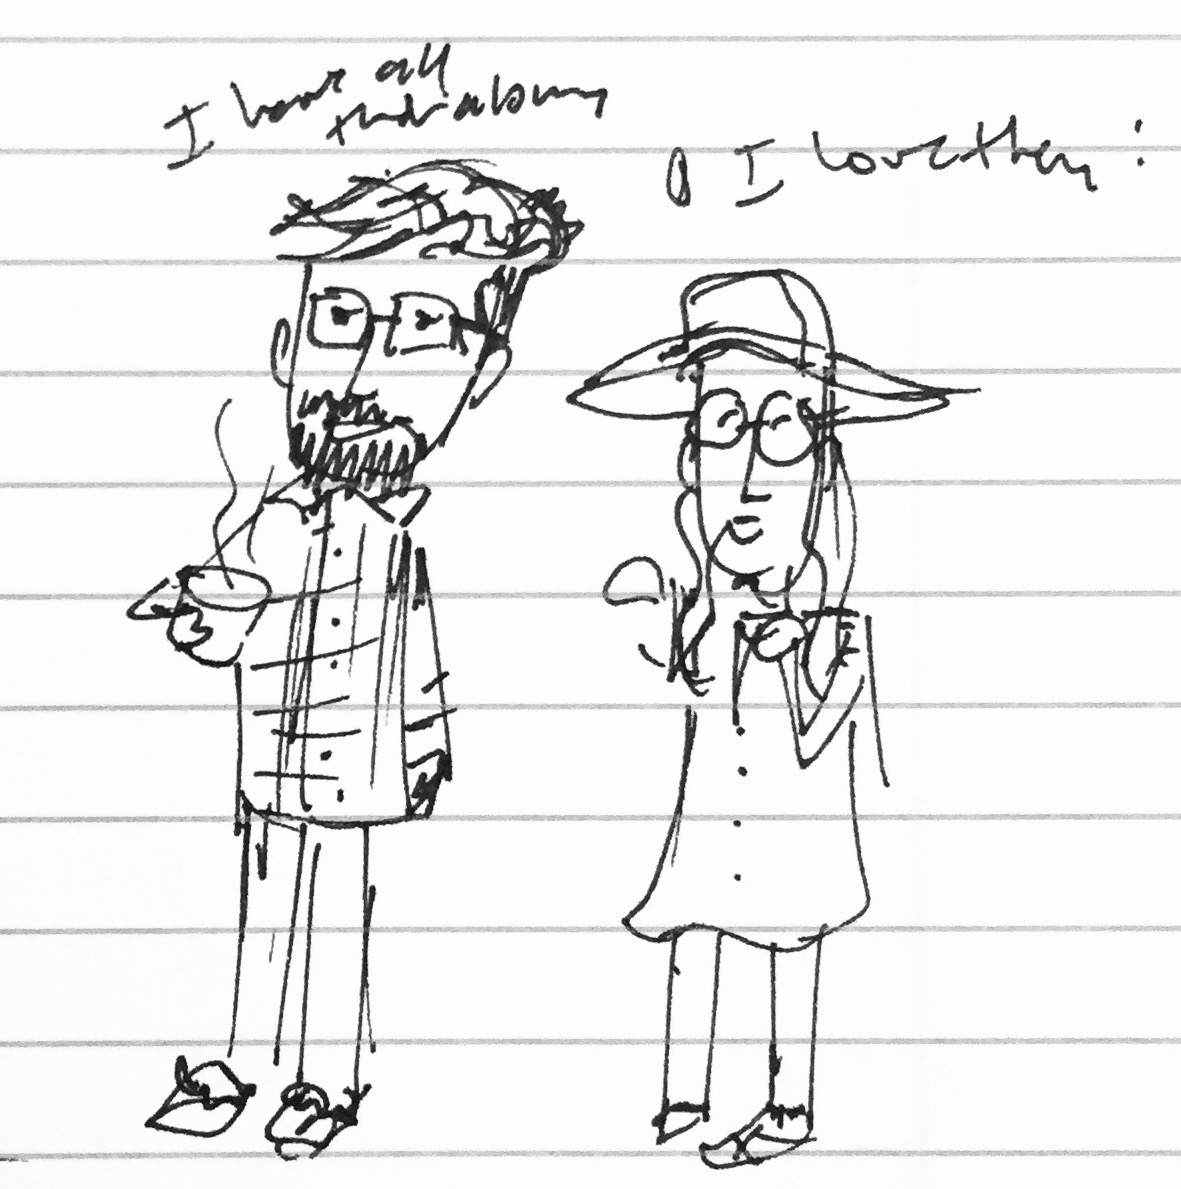 I have all
their albums
O I love them!